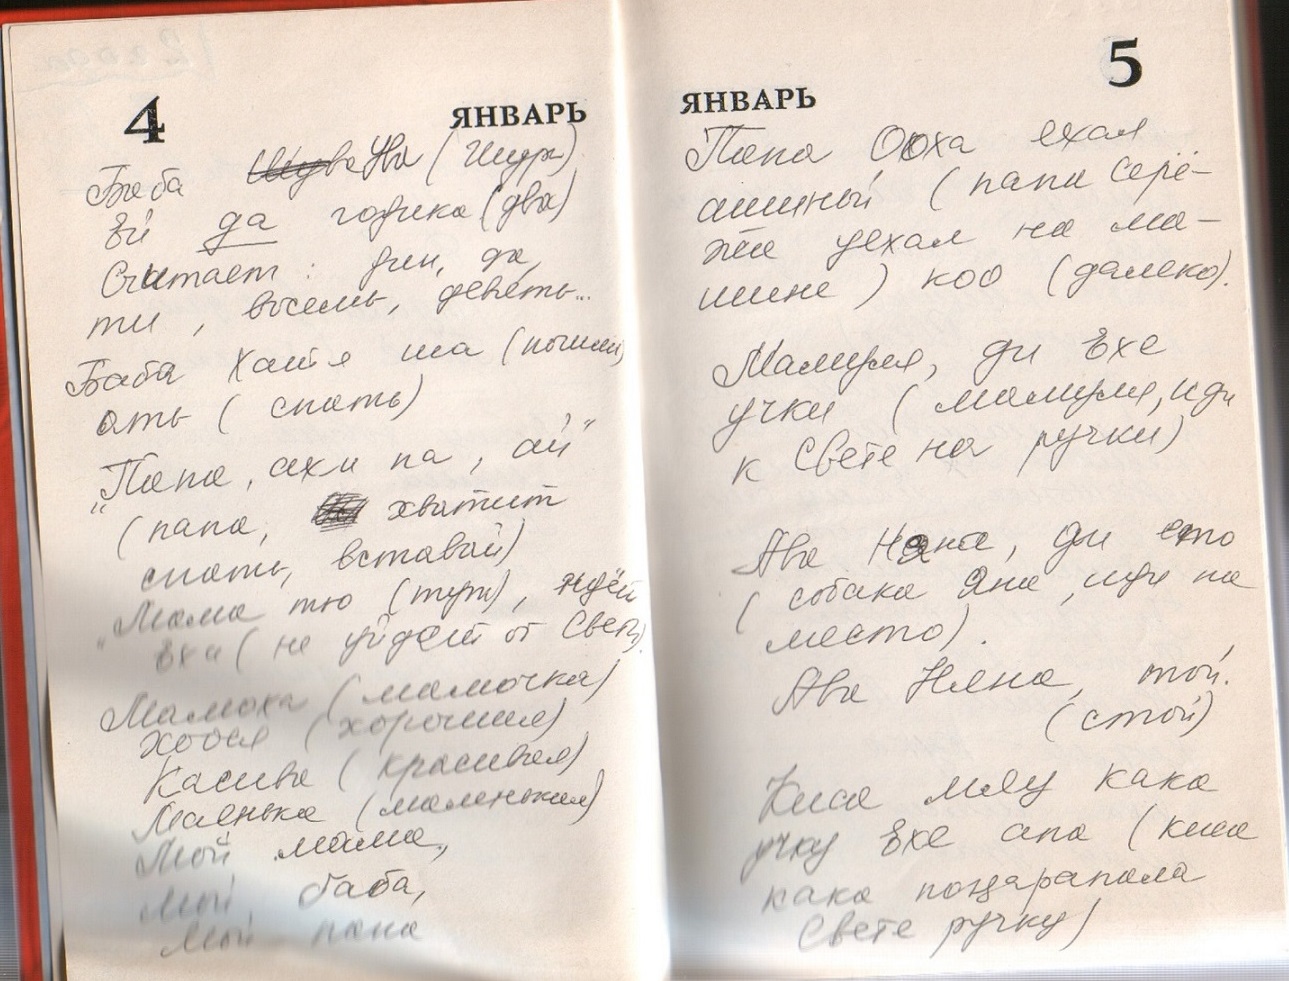 4
ЯНВАРЬ
Баба Ува (Шура)
Ей да годика (два)
Считает: дин, да,
ти, восемь, деветь...
Баба Хаитя ша (пошли)
ать (спать)
"Папа, ахи па, ай"
(папа, хватит
спать, вставай)
"Мама тю (тут), ждёй
Ехи (не уйдёт от Светы)
Мамоха (мамочка)
хоося (хорошая)
Касива (красивая)
Маенька (маленькая)
Мой мама,
Мой баба,
Мой папа
5
ЯНВАРЬ
Папа Ооха ехал
ашиной (папа Серё-
жа уехал на ма-
шине) коо (далеко).
Мамуля, ди Ехе
учки (мамуля, иди
к Свете на ручки)
Ава Няна, ди сто
(собака Яна, иди на
место).
Ава Няна, той.
(стой)
Киса мяу кака
учку Ехе апа (киса
кака поцарапала
Свете ручку)